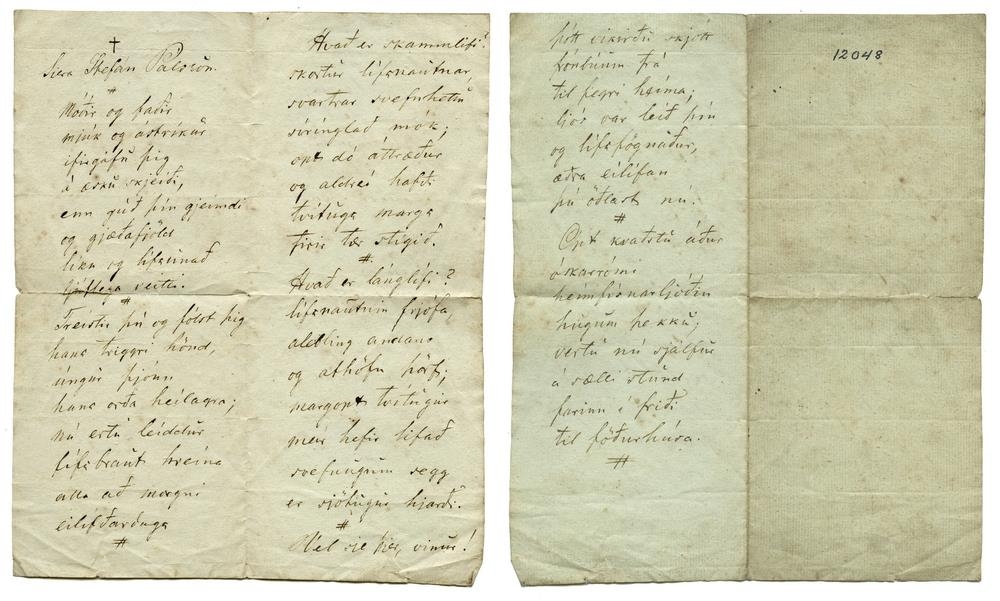 ✝
Síera Stefán Pálsson.
#
Móðir og faðir
mjúk og ástríkur
ifirgáfu þig
á æsku skjeiði,
enn guð þín gjeimdi
og gjæðafjöld
líkn og lífsunað
ljúflega veitti.
#
Treistir þú og fólst þig
hans triggri hönd,
úngur þjónn
hans orða heilagra;
nú ertu leiddur
lífsbraut hreina
alla að megni
eilífðarduga
#
Hvað er skammlífi?
skortur lífsnautnar,
svartrar svefnhettu
síringlað mók;
opt dó áttræður
og aldrei hafði
tvítugs manns
firir tær stigið.
#
Hvað er lánglífi?
lífsnautnin frjófa,
alefling andans
og athöfn þörf;
margopt tvítugur
meir hefir lifað
svefnugum segg
er sjötugur hjarði.
#
Vel sje þjer, vinur!
þótt vikirðu skjótt
frónbúum frá
til fegri heima;
ljós var leið þín
og lífsfögnuður,
æðra eilífan
þú öðlast nú.
#
Opt kvaðstu áður
óskarrómi
heimfísnarljóðin
hugum þekku;
vertú nú sjálfur
á sælli stund
farinn í friði
til föðurhúsa.
#
12048